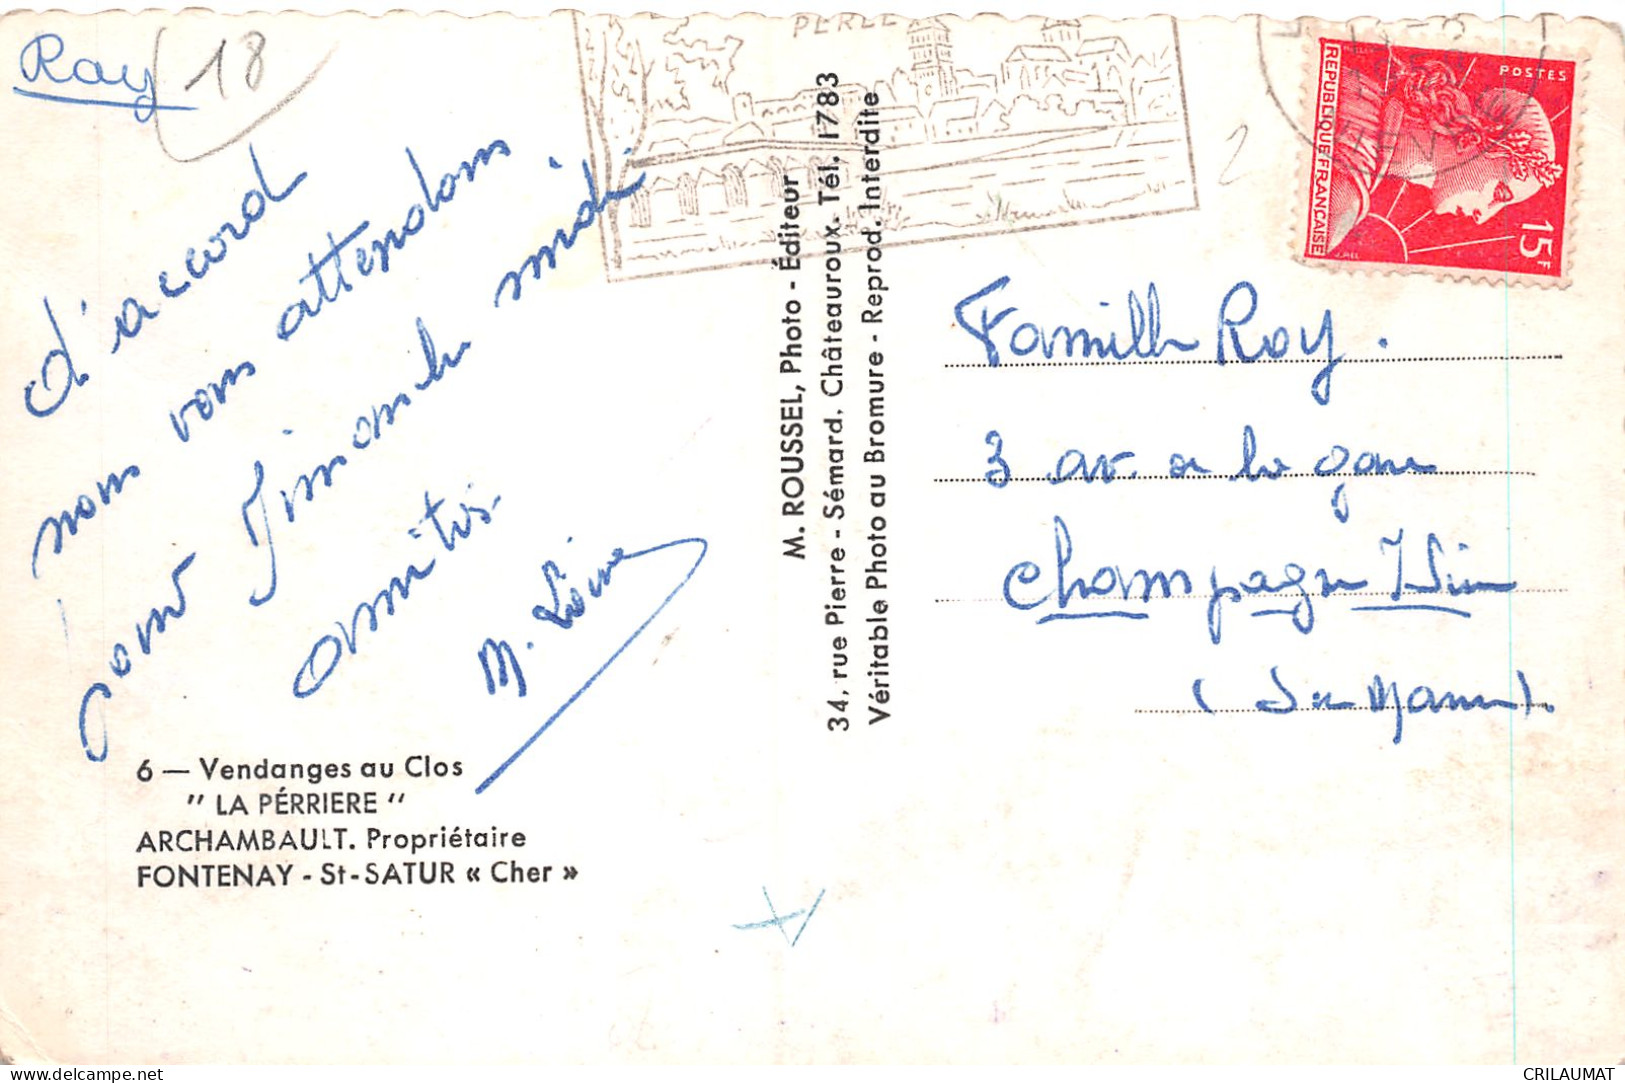 Ray
18
d'accord
nous vous attendons
pour Dimanche midi
amitiés
6 — Vendanges au Clos
" LA PÉRRIERE "
ARCHAMBAULT. Propriétaire
FONTENAY - St-SATUR « Cher »
M. ROUSSEL, Photo - Éditeur
34, rue Pierre - Sémard. Châteauroux. Tél. 1783
Véritable Photo au Bromure - Reprod. Interdite
PERLE
POSTES
REPUBLIQUE FRANÇAISE
15F
Famille Ray.
3 av. de la gare
Champagne
CRILAUMAT